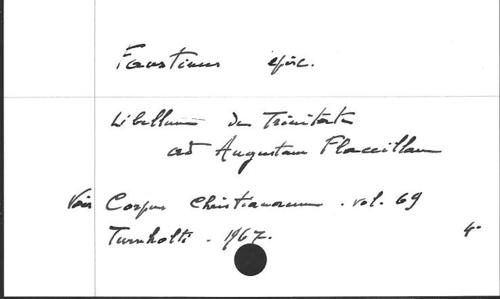 Faustinus epûc.
Libellum de Trinitate
ad Augustam Flaccillam
Voir Corpus Christianorum . vol. 69
Turnholti . 1967.
4°